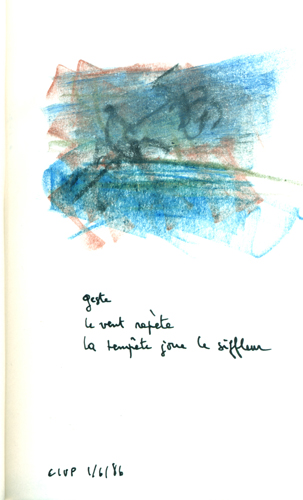 geste
le vent répète
la tempête joue le siffleur
CIUP 1/6/86